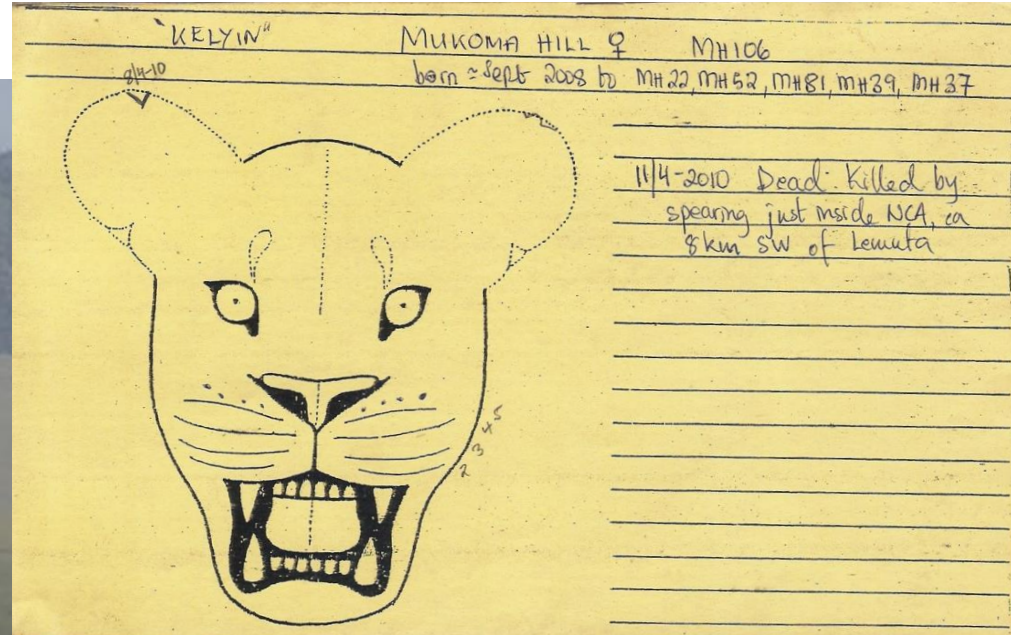 "KELYIN" MUKOMA HILL ♀ MH106
born ≈ Sept 2008 to MH22, MH52, MH81, MH39, MH37
8/4-10
11/4-2010 Dead. Killed by
spearing just inside NCA, ca
8km SW of Lemuta
5
4
3
2